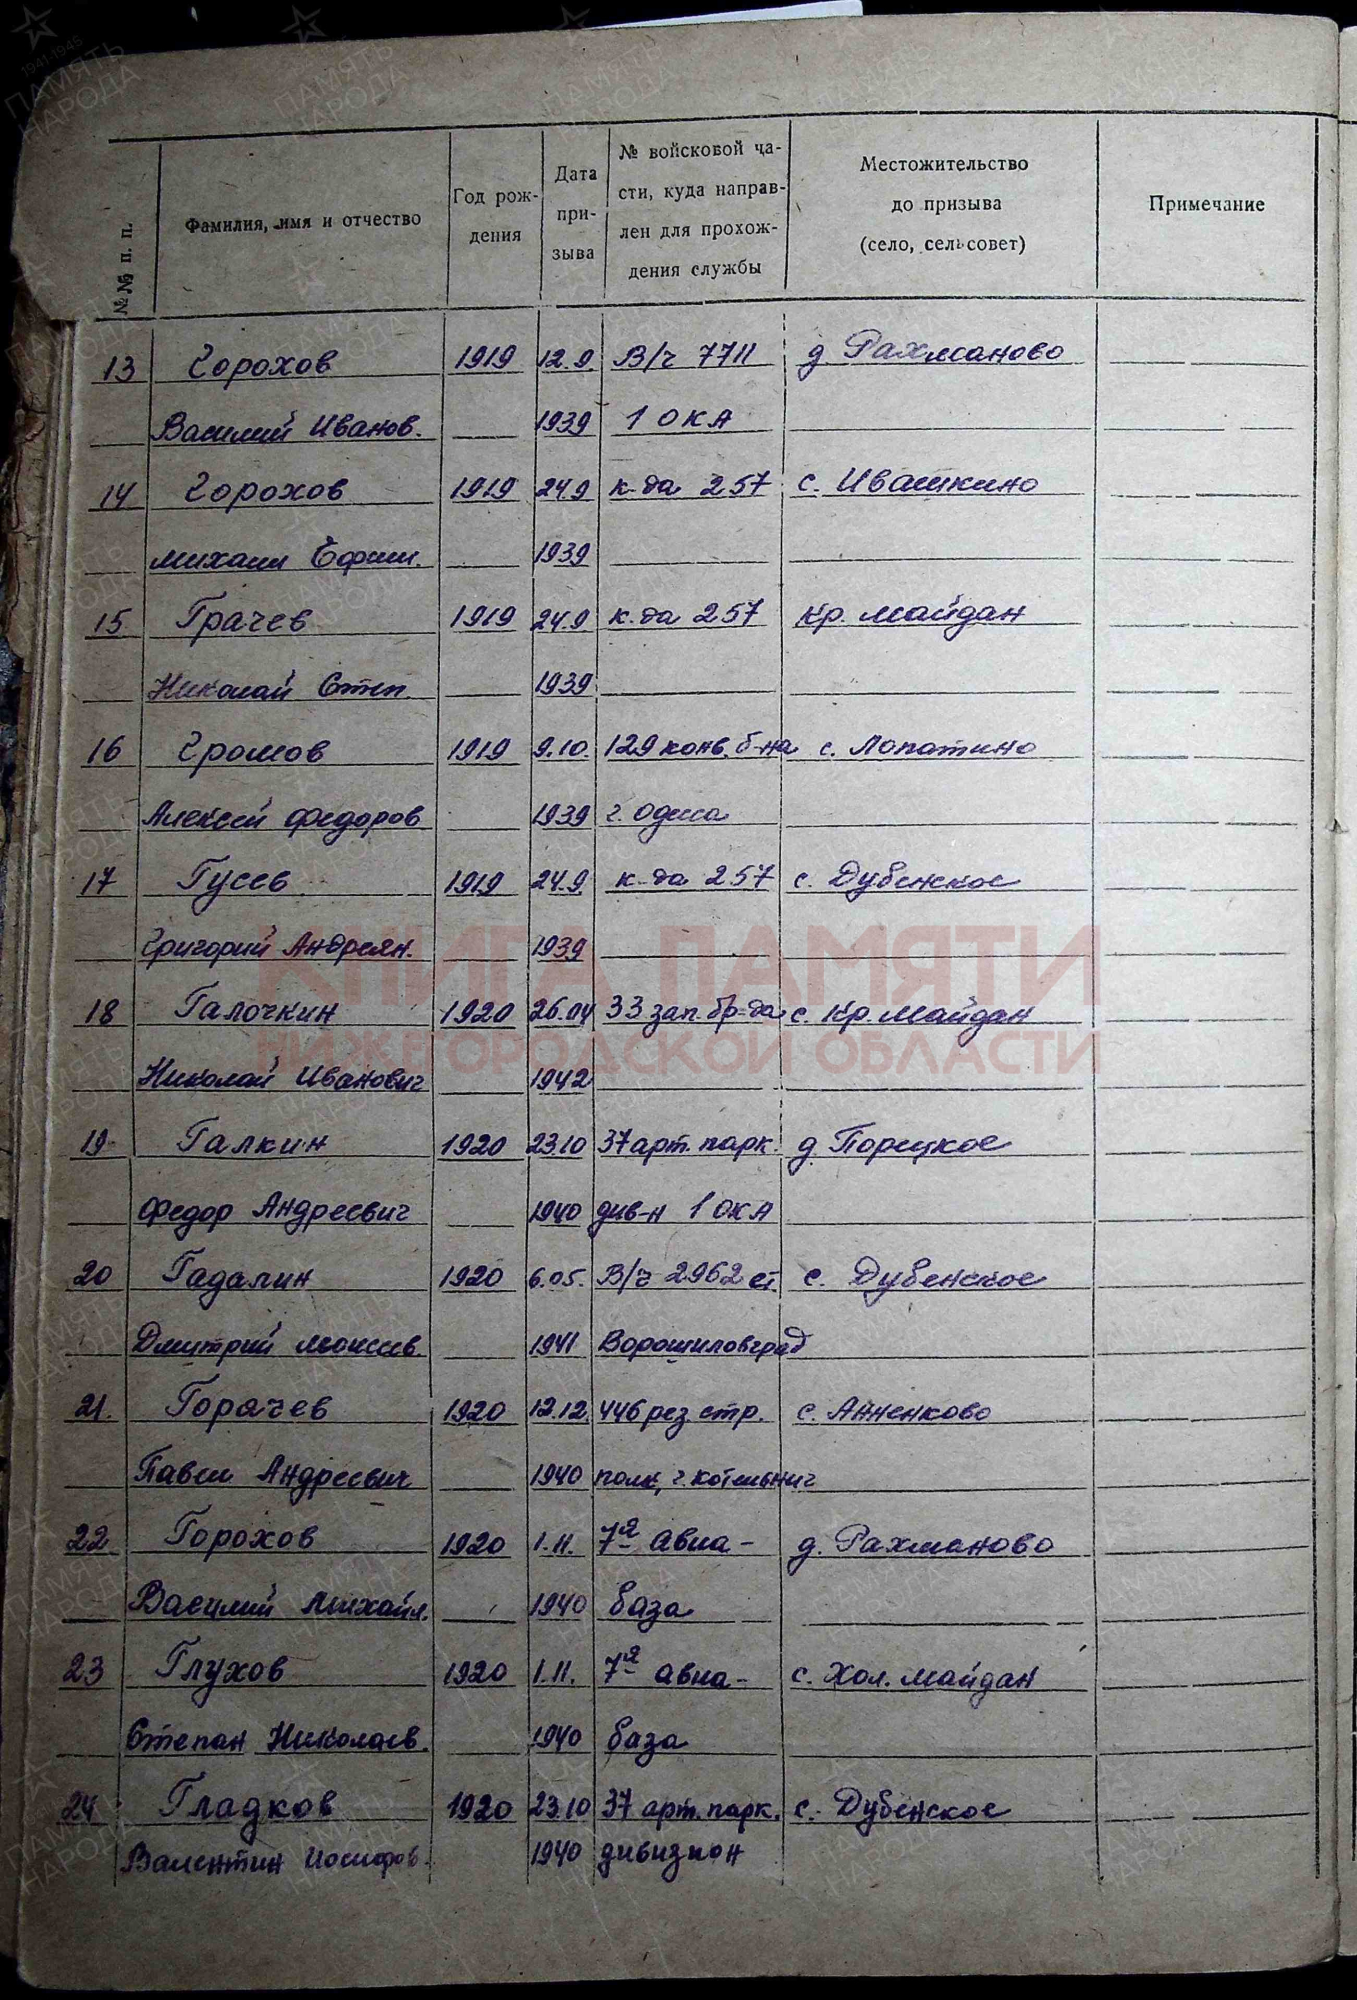 №№ п. п. Фамилия, имя и отчество Год рож- Дата № войсковой ча- Местожительство Примечание
дения при- сти, куда направ- до призыва
зыва лен для прохож- (село, сельсовет)
дения службы
13 Горохов 1919 12.9. В/ч 7711 д. Рахманово
Василий Иванов. 1939 1 ОКА
14 Горохов 1919 24.9 к-да 257 с. Ивашкино
Михаил Ефим. 1939
15 Грачев 1919 24.9 к-да 257 Кр. Майдан
Николай Степ. 1939
16 Громов 1919 9.10. 129 конв. б-на с. Лопатино
Алексей Федоров 1939 г. Одесса
17 Гусев 1919 24.9. к-да 257 с. Дубенское
Григорий Андреян. 1939
КНИГА ПАМЯТИ
18 Галочкин 1920 26.04 33 зап. бр-да с. Кр. Майдан
НИЖЕГОРОДСКОЙ ОБЛАСТИ
Николай Иванович 1942
19 Галкин 1920 23.10 37 арт. парк. д. Порецкое
Федор Андреевич 1940 див-н 1 ОКА
20 Гадалин 1920 6.05. В/ч 2962 ст. с. Дубенское
Дмитрий Моисеев. 1941 Ворошиловград
21. Горячев 1920 12.12. 446 рез. стр. с. Анненково
Павел Андреевич 1940 полк, г. Котельнич
22 Горохов 1920 1.11. 7я Авиа- д. Рахманово
Василий Михайл. 1940 база
23 Глухов 1920 1.11. 7я авиа- с. Хол. Майдан
Степан Николаев. 1940 база
24 Гладков 1920 23.10 37 арт. парк. с. Дубенское
Валентин Иосифов. 1940 дивизион